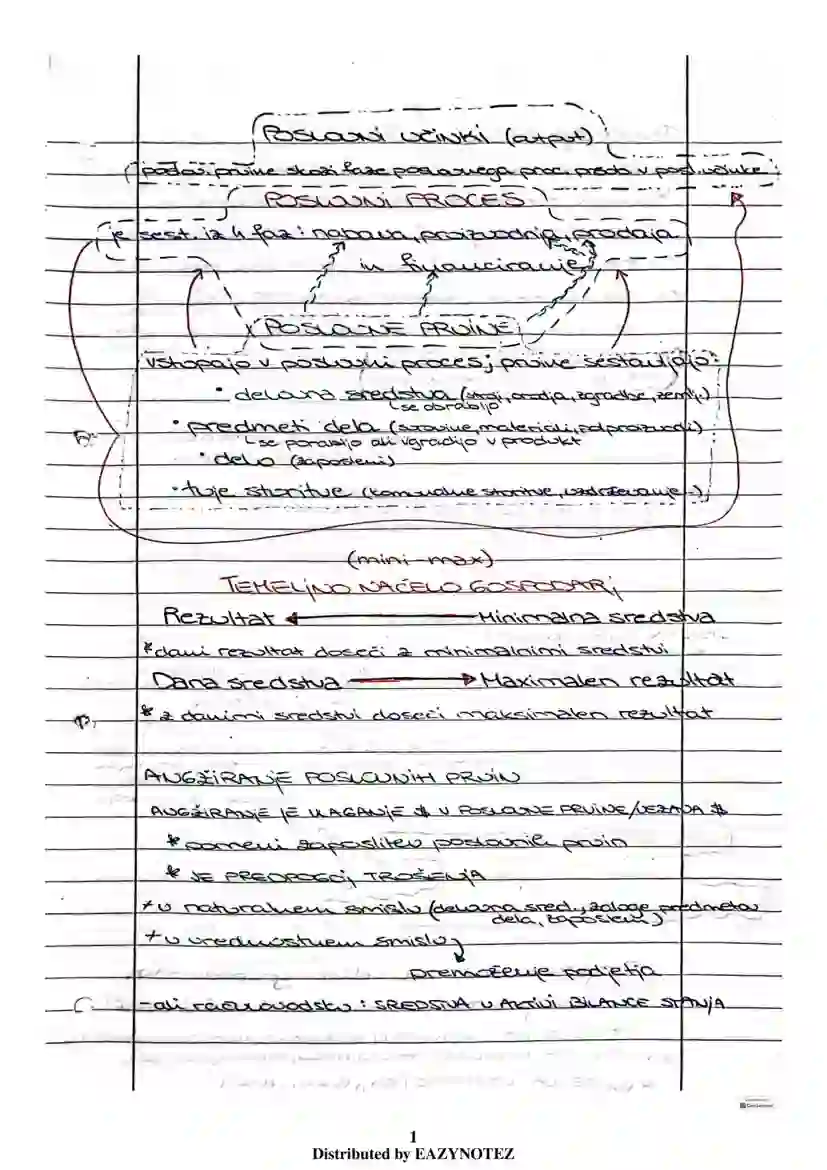 POSLOVNI UČINKI (output)
poslov. prvine skozi faze poslovnega proc. preda v posl. učinke
POSLOVNI PROCES
je sest. iz 4 faz: nabava, proizvodnja, prodaja
in financiranje
POSLOVNE PRVINE
vstopajo v poslovni proces; prvine sestavljajo:
• delovna sredstva (stroji, orodja, zgradbe, zemlj.)
se obrabijo
• predmeti dela (surovine, materiali, polproizvodi)
se porabijo ali vgradijo v produkt
• delo (zaposleni)
• tuje storitve (komunalne storitve, vzdrževanje..)
(mini-max)
TEMELJNO NAČELO GOSPODARJ
Rezultat Minimalna sredstva
*dani rezultat doseči z minimalnimi sredstvi
Dana sredstva Maximalen rezultat
* z danimi sredstvi doseči maksimalen rezultat
ANGŽIRANJE POSLOVNIH PRVIN
ANGŽIRANJE JE VLAGANJE $ V POSLOVNE PRVINE/VEZAVA $
* pomeni zaposlitev poslovnih prvin
* JE PREDPOGOJ TROŠENJA
+ v naturalnem smislu (delovna sred., zaloge predmetov
dela, zaposleni)
+ v vrednostnem smislu
premoženje podjetja
-ali računovodsko: SREDSTVA V AKTIVI BILANCE STANJA
1
Distributed by EAZYNOTEZ